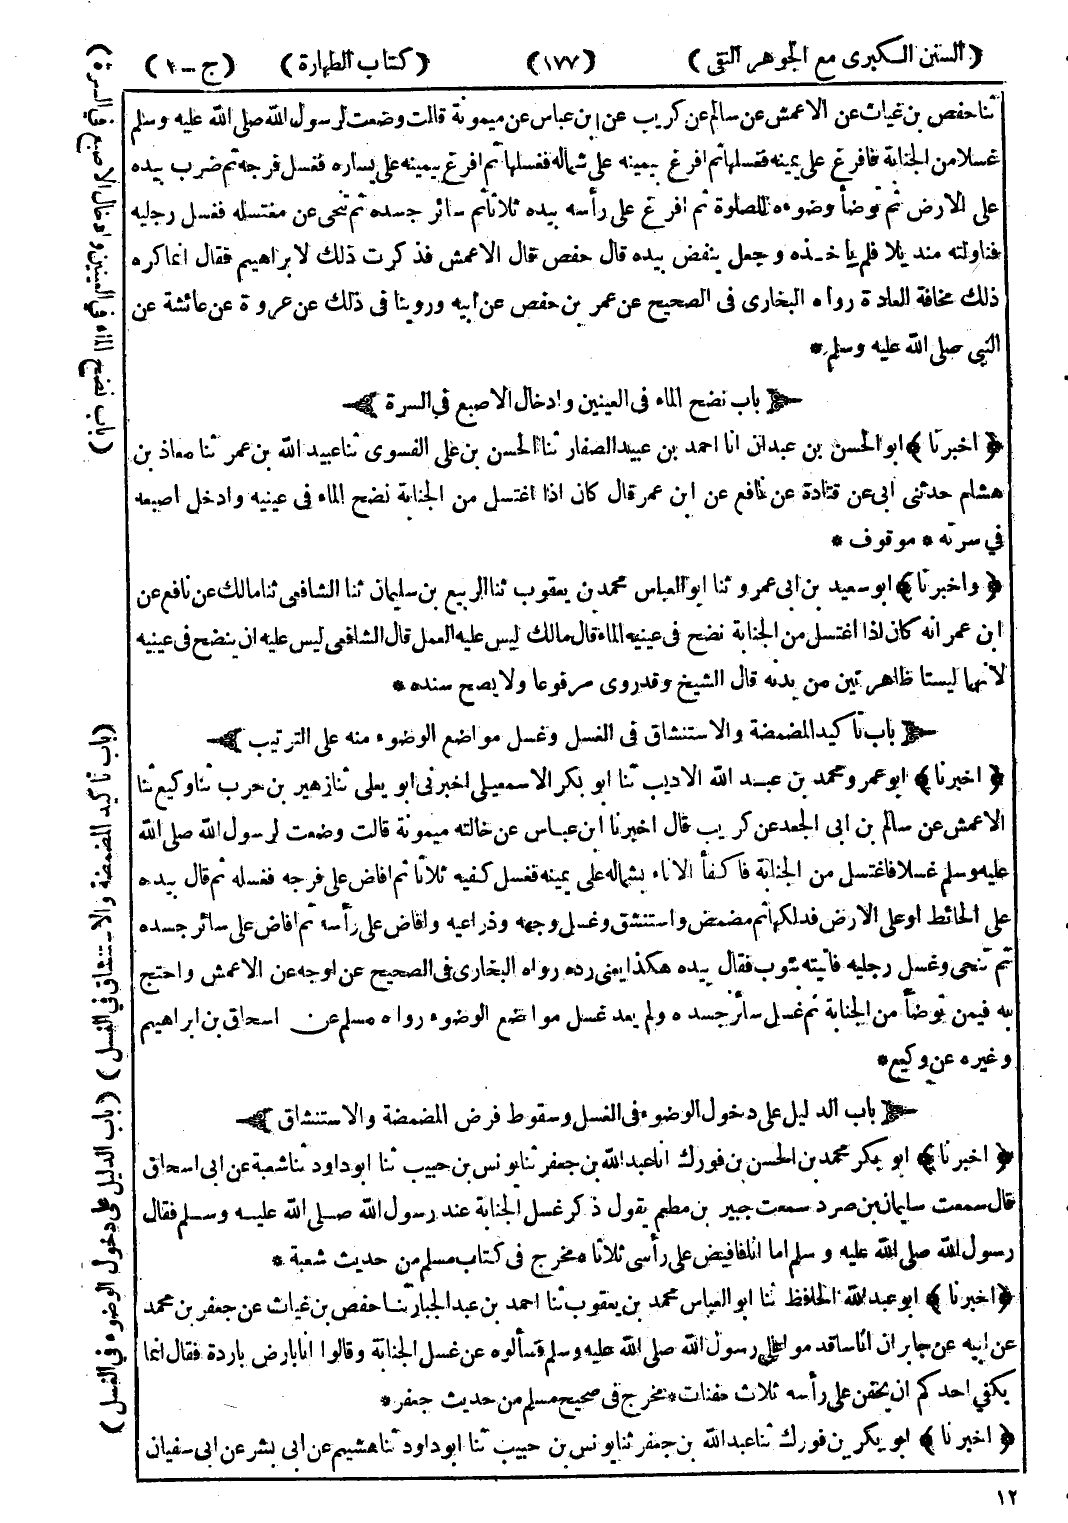 (السنن الكبرى مع الجوهر النقي) (١٧٧) (كتاب الطهارة) (ج - ١)
ثنا حفص بن غياث عن الاعمش عن سالم عن كريب عن ابن عباس عن ميمونة قالت وضعت لرسول الله صلى الله عليه وسلم
غسلا من الجنابة فافرغ على يمينه فغسلها ثم افرغ بيمينه على شماله فغسلها ثم افرغ بيمينه على يساره فغسل فرجه ثم ضرب بيده
على الارض ثم توضأ وضوءه للصلوة ثم افرغ على رأسه بيده ثلاثا ثم سائر جسده ثم تنحى عن مغتسله فغسل رجليه
فناولته منديلا فلم يأخذه وجعل ينفض بيده قال حفص قال الاعمش فذكرت ذلك لابراهيم فقال انما كره
ذلك مخافة العادة رواه البخارى فى الصحيح عن عمر بن حفص عن ابيه وروينا فى ذلك عن عروة عن عائشة عن
النبي صلى الله عليه وسلم *
باب نضح الماء فى العينين وادخال الاصبع في السرة
﴿ اخبرنا ﴾ ابو الحسن بن عبدان انا احمد بن عبيد الصفار ثنا الحسن بن على الفسوى ثنا عبيد الله بن عمر ثنا معاذ بن
هشام حدثنى ابى عن قتادة عن نافع عن ابن عمر قال كان اذا اغتسل من الجنابة نضح الماء فى عينيه وادخل اصبعه
في سرته * موقوف *
﴿ واخبرنا ﴾ ابو سعيد بن ابى عمرو ثنا ابو العباس محمد بن يعقوب ثنا الربيع بن سليمان ثنا الشافعى ثنا مالك عن نافع عن
ابن عمر انه كان اذا اغتسل من الجنابة نضح فى عينيه الماء قال مالك ليس عليه العمل قال الشافعى ليس عليه ان ينضح فى عينيه
لانهما ليستا ظاهرتين من بدنه قال الشيخ وقد روى مرفوعا ولا يصح سنده *
باب تأكيد المضمضة والاستنشاق فى الغسل وغسل مواضع الوضوء منه على الترتيب
﴿ اخبرنا ﴾ ابو عمرو محمد بن عبد الله الاديب ثنا ابو بكر الاسمعيلى اخبرنى ابو يعلى ثنا زهير بن حرب ثنا وكيع ثنا
الاعمش عن سالم بن ابى الجعد عن كريب قال اخبرنا ابن عباس عن خالته ميمونة قالت وضعت لرسول الله صلى الله
عليه وسلم غسلا فاغتسل من الجنابة فاكفأ الاناء بشماله على يمينه فغسل كفيه ثلاثا ثم افاض على فرجه فغسله ثم قال بيده
على الحائط او على الارض فدلكها ثم مضمض واستنشق وغسل وجهه وذراعيه وافاض على رأسه ثم افاض على سائر جسده
ثم تنحى وغسل رجليه فاتيته بثوب فقال بيده هكذا يعنى رده رواه البخارى فى الصحيح عن اوجه عن الاعمش واحتج
به فيمن توضأ من الجنابة ثم غسل سائر جسده ولم يعد غسل مواضع الوضوء رواه مسلم عن اسحاق بن ابراهيم
وغيره عن وكيع *
باب الدليل على دخول الوضوء فى الغسل وسقوط فرض المضمضة والاستنشاق
﴿ اخبرنا ﴾ ابو بكر محمد بن الحسن بن فورك انا عبد الله بن جعفر ثنا يونس بن حبيب ثنا ابو داود ثنا شعبة عن ابى اسحاق
قال سمعت سليمان بن صرد سمعت جبير بن مطعم يقول ذكر غسل الجنابة عند رسول الله صلى الله عليه وسلم فقال
رسول الله صلى الله عليه وسلم اما انا فافيض على رأسى ثلاثا * مخرج فى كتاب مسلم من حديث شعبة *
﴿ اخبرنا ﴾ ابو عبد الله الحافظ ثنا ابو العباس محمد بن يعقوب ثنا احمد بن عبد الجبار ثنا حفص بن غياث عن جعفر بن محمد
عن ابيه عن جابر ان اناسا قدموا على رسول الله صلى الله عليه وسلم فسألوه عن غسل الجنابة وقالوا انا بارض باردة فقال انما
يكفي احدكم ان يحفن على رأسه ثلاث حفنات * مخرج فى صحيح مسلم من حديث جعفر *
﴿ اخبرنا ﴾ ابو بكر بن فورك ثنا عبد الله بن جعفر ثنا يونس بن حبيب ثنا ابو داود ثنا هشيم عن ابى بشر عن ابى سفيان
١٢
(باب نضح الماء في العينين وادخال الاصبع في السرة)
(باب تأكيد المضمضة والاستنشاق في الغسل)
(باب الدليل على دخول الوضوء في الغسل)